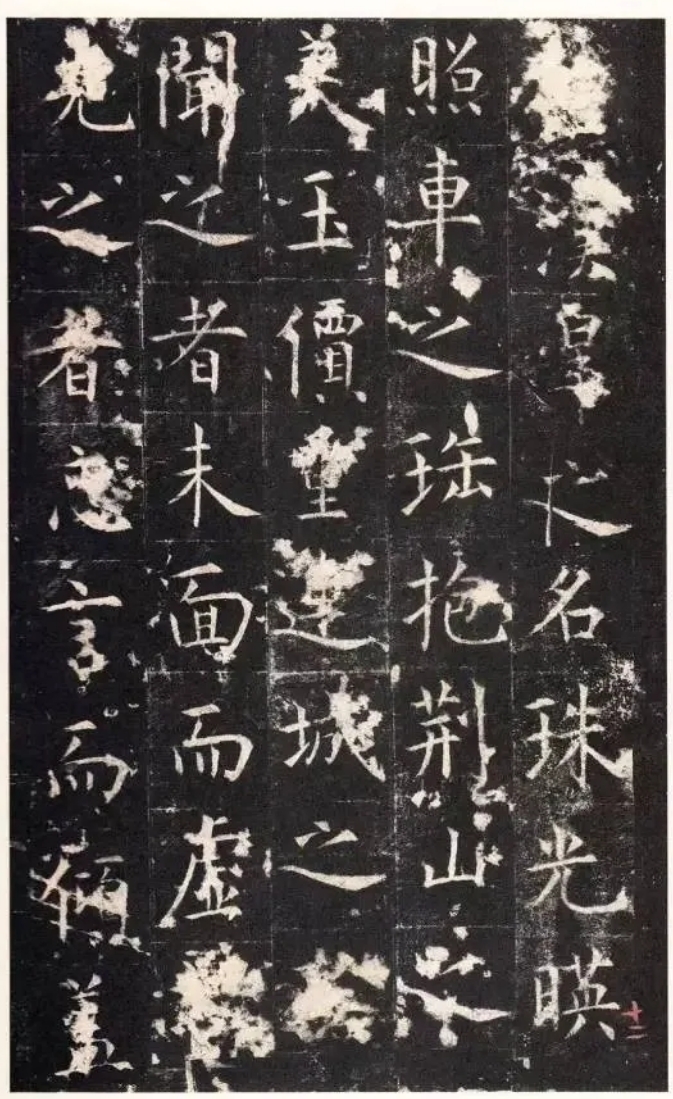 漢皋之名珠光暎
照車之珤抱荊山之
美玉價重連城之
聞之者未面而虛
見之者忘言而傾蓋
十二